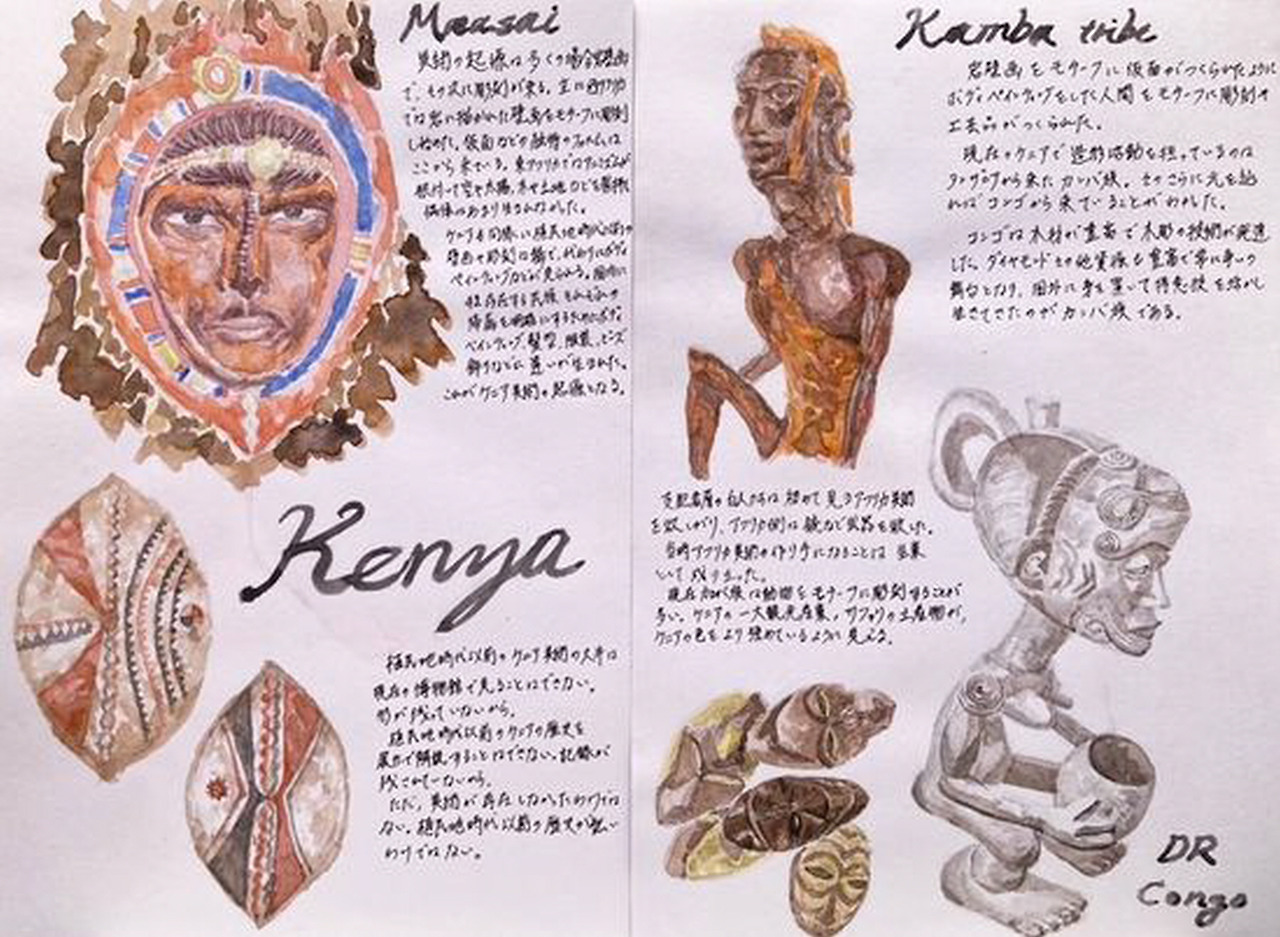 Maasai
美術の起源は多くの場合壁画
で、その次に彫刻が来る。主に西アフリカ
では岩に描かれた壁画をモチーフに彫刻
し始めた。仮面などの独特のフォルムは
ここから来ている。東アフリカでは
根付いて空や太陽、木や土地などを崇拝
偶像はあまり生まれなかった。
ケニアも同様に植民地時代以前の
壁画や彫刻は稀で、代わりにボディ
ペインティングなどが見られる。国内に
存在する民族それぞれの
帰属を明確にするためにボディ
ペインティング、髪型、服装、ビーズ
飾りなどに違いが生まれた。
これがケニア美術の起源となる。
Kenya
植民地時代以前のケニア美術の大半は
現在の博物館で見ることはできない。
形が残っていないから。
植民地時代以前のケニアの歴史を
展示で解説することはできない。記録が
残されていないから。
ただ、美術が存在しなかったわけでは
ない。植民地時代以前の歴史が無い
わけではない。
Kamba tribe
岩壁画をモチーフに仮面がつくられたように
ボディペインティングをした人間をモチーフに彫刻や
工芸品がつくられた。
現在のケニアで造形活動を担っているのは
タンザニアから来たカンバ族。そのさらに元を辿
ればコンゴから来ていることがわかした。
コンゴは木材が豊富で木彫の技術が発達
した。ダイヤモンドその他資源も豊富で常に争いの
舞台となり、国外に身を置いて得意技を活かし
生きてきたのがカンバ族である。
支配者層の白人たちは初めて見るアフリカ美術
を欲しがり、アフリカ側は銃など武器を欲した。
当時アフリカ美術の作り手になることは営業
として成り立った。
現在カンバ族は動物をモチーフに彫刻することが
多い。ケニアの一大観光産業、サファリの土産物が、
ケニアの色をより強めているように見える。
DR
Congo